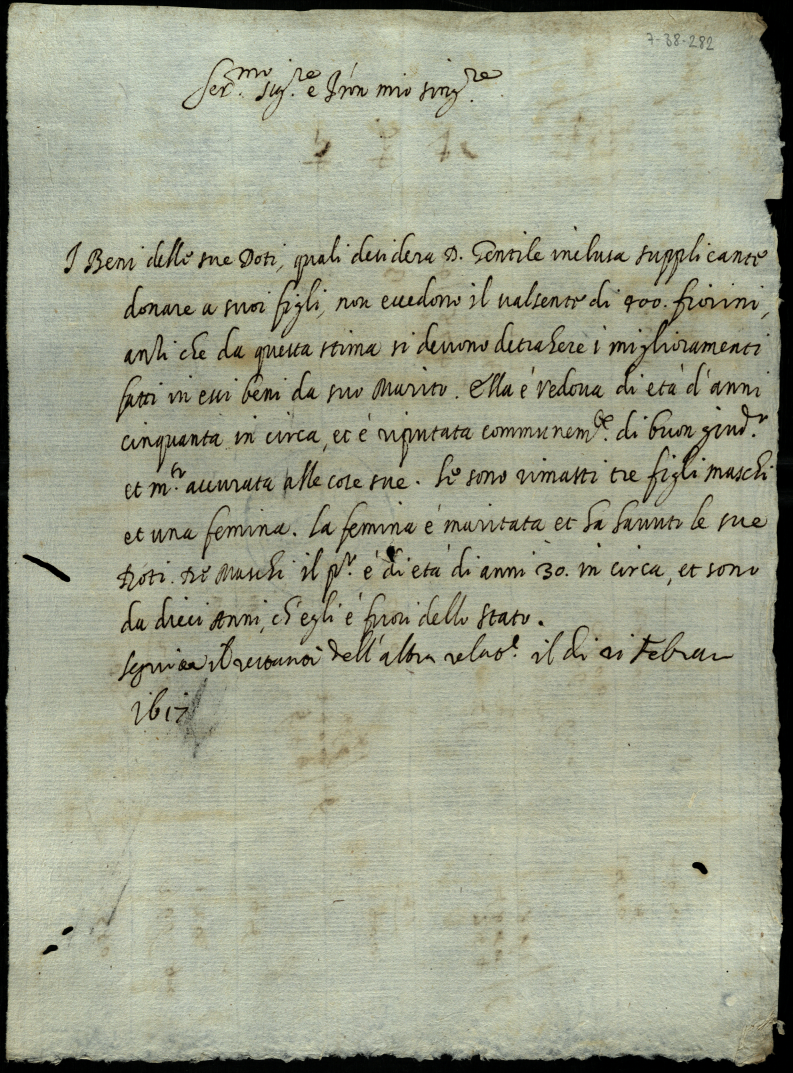 7-38-282
Ser.mo sig.re e P'ron mio sing.re
I Beni delle sue Doti, quali desidera D. Gentile inclusa supplicante
donare a suoi figli, non eccedono il valsente di 400. fiorini,
anzi che da questa stima si devono detrahere i miglioramenti
fatti in essi beni da suo Marito. Ella é vedova di etá d'anni
cinquanta in circa, et é riputata communem.te di buon giud.o
et m.to accurata alle cose sue. Le sono rimasti tre figli maschi
et una femina. La femina é maritata et ha havuto le sue
Doti. De Maschi il p.o é di etá di anni 30. in circa, et sono
da dieci Anni, ch'egli é fuori dello stato.
il restante dell'altra relat.e il di 21 Febraro
1617